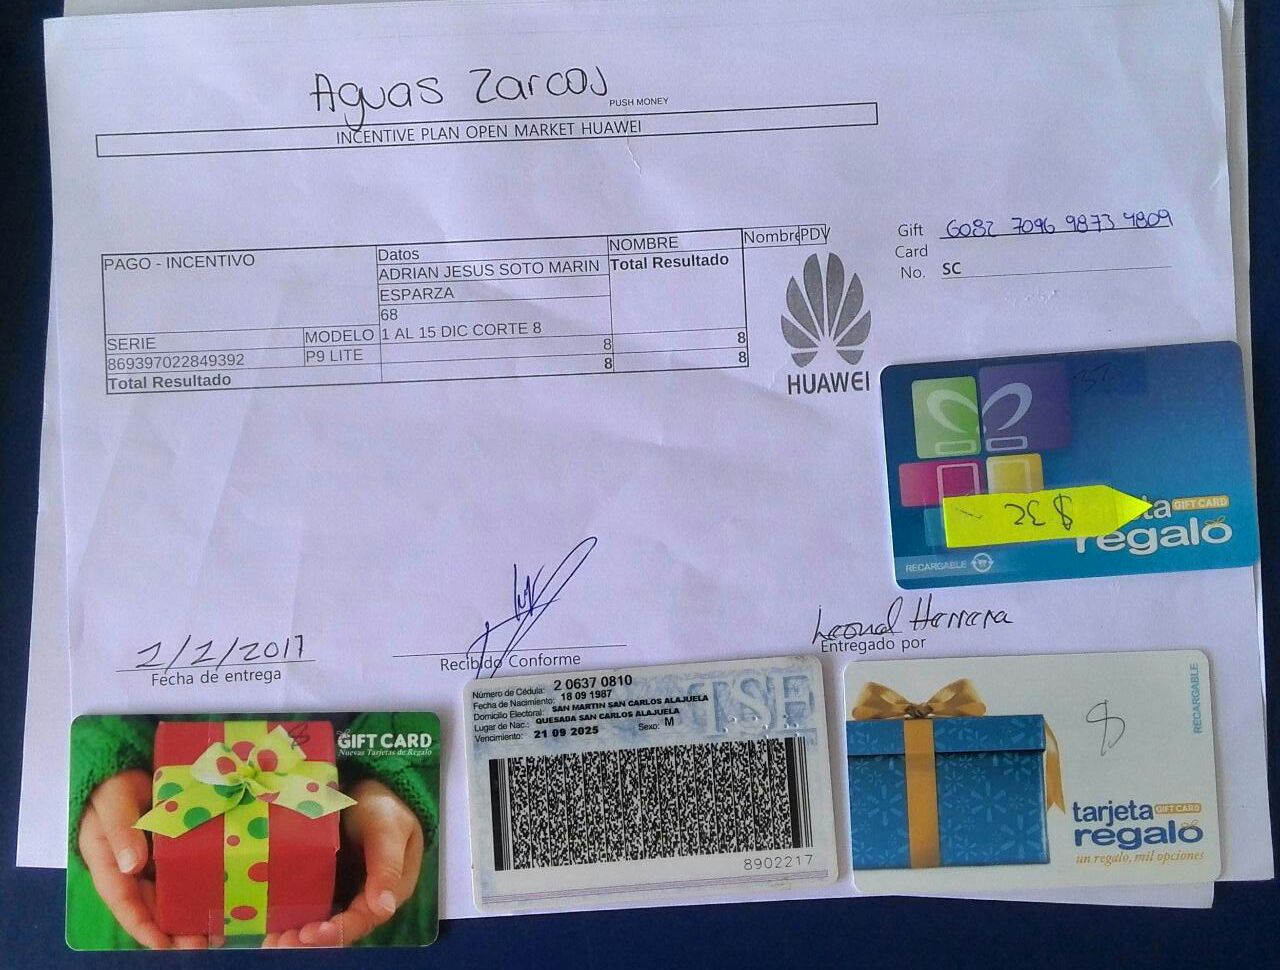 Aguas Zarcas
PUSH MONEY
INCENTIVE PLAN OPEN MARKET HUAWEI
Gift Card No. 6082 7096 9873 4809
SC
PAGO - INCENTIVO Datos NOMBRE Nombre PDV
ADRIAN JESUS SOTO MARIN Total Resultado
ESPARZA
68
SERIE MODELO 1 AL 15 DIC CORTE 8
869397022849392 P9 LITE 8 8
Total Resultado 8 8
HUAWEI
32
$32
ta GIFT CARD
regalo
RECARGABLE
2/2/2017
Fecha de entrega
Recibido Conforme
Leonel Herrera
Entregado por
8
GIFT CARD
Nuevas Tarjetas de Regalo
Número de Cédula: 2 0637 0810
Fecha de Nacimiento: 18 09 1987
Domicilio Electoral: SAN MARTIN SAN CARLOS ALAJUELA
Lugar de Nac.: QUESADA SAN CARLOS ALAJUELA
Sexo: M
Vencimiento: 21 09 2025
TSE
8902217
RECARGABLE
8
tarjeta GIFT CARD
regalo
un regalo, mil opciones